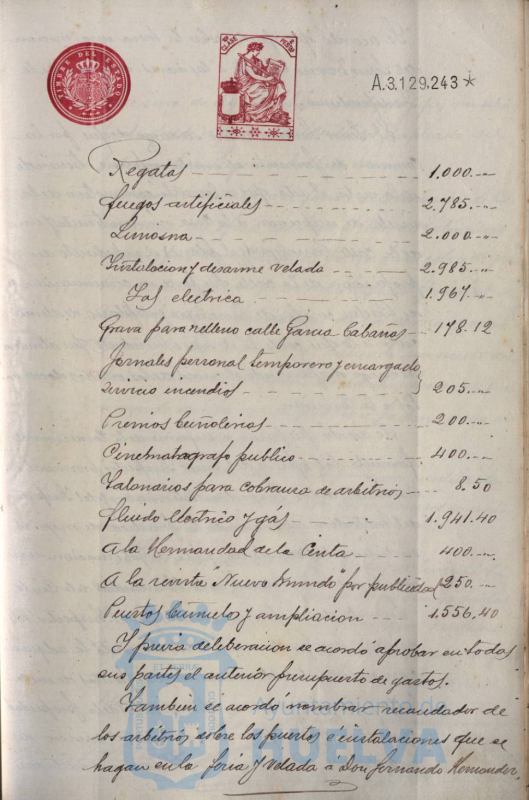 TIMBRE DEL ESTADO
CLASE PESETA
A.3.129.243*
Regatas 1.000.--
fuegos artificiales 2.785.--
Limosna 2.000.--
Instalacion y desarme velada 2.985.--
Las electrica 1.967.--
Grava para relleno calle Garcia Cabañas 178.12
Jornales personal temporero y encargado
servicio incendios 205.--
Premios buñolerias 200.--
Cinematografo publico 400.--
Talonarios para cobranza de arbitrios 8.50
fluido electrico y gás 1.941.40
A la Hermandad de la Cinta 400.--
A la revista "Nuevo Mundo" por publicidad 250.--
Puestos buñuelos y ampliacion 1.556,40
Y previa deliberacion se acordó aprobar en todas
sus partes el anterior presupuesto de gastos.
Tambien se acordó nombrar recaudador de
los arbitrios sobre los puestos é instalaciones que se
hagan en la feria y Velada á Don Fernando Hernandez,
Ayuntamiento de
HUELVA